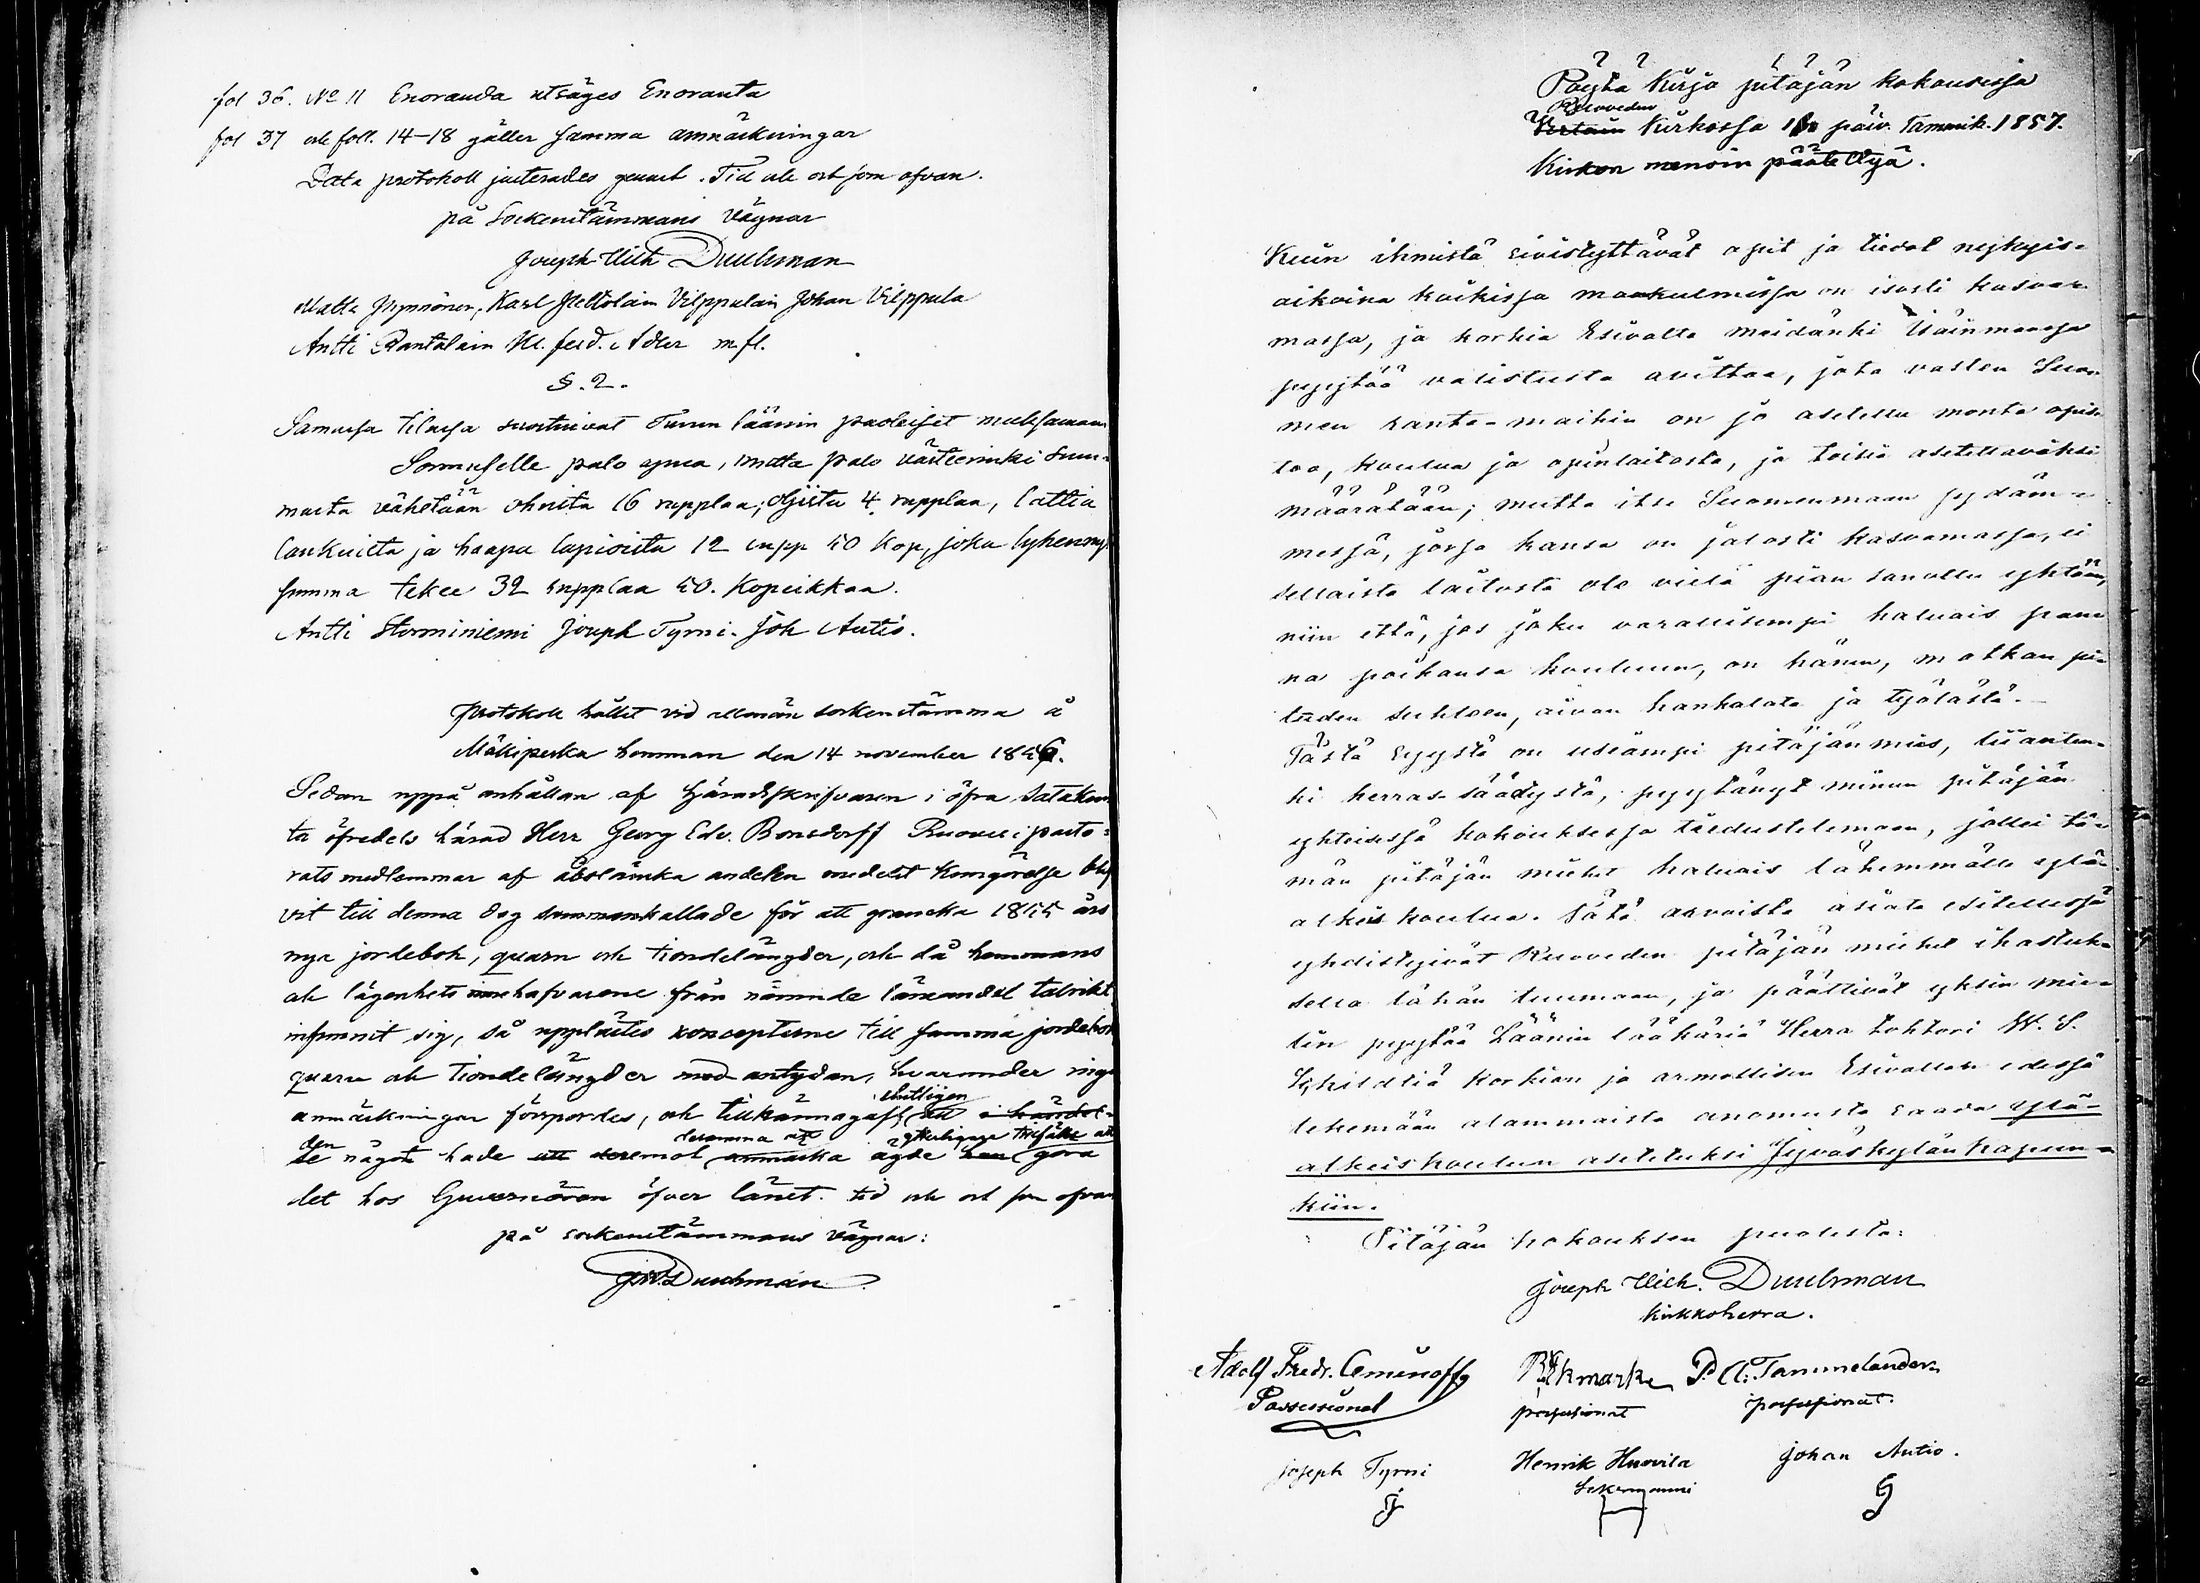 fol 36. No 11 Enoranda utsäges Enoranta
fol 37 och foll. 14-18 gäller samma anmärkningar
Detta protokoll justerades genast. Tid och ort som ofvan.
på Sockenstämmans vägnar
Joseph Wilh Durchman
Matts Karl Peltolain Vilppulain Johan Vilppula
Antti Rantalain Kl. ferd. Adler m.fl.
§. 2.
Samassa tilassa suostuivat Turun läänin puoleiset maksamaan
palo apua, mutta palo värteerinki sum-
masta vähetään ohrista 16 rupplaa; Oljista 4 rupplaa, lattia
lankuilta ja haapa lapioista 12 rupp 50 Kop, joka lyhenny
summa tekee 32 rupplaa 50. Kopeikkaa.
Antti Storminiemi Joseph Tyrni. Joh Autio.
Protokoll hållet vid allmän sockenstämma å
Mäkipeska hemman den 14 november 1856.
Sedan uppå anhållan af Häradsskrifvaren i öfra Satakun
ta öfredels härad Herr Georg Edv. Bonsdorff Ruovesi pasto-
rats medlemmar af åboländska andelen medelst Kungörelse blif
vit till denna dag sammankallade för att granska 1855 års
nya jordebok, quarn och tiondelängder, och då hemmans
och lägenhets innehafvarene från nämnde länsandel talrikt
infunnit sig, så upplästes koncepterne till samma jordebok
quarn och Tiondelängder med antydan, hvarunder inga
anmärkningar förspordes, och tillkännagafs slutligen att i händel-
se den någon hade att deremot anmärka desamma att ägde ytterligare tillfälle att göra
det hos Guvernören öfver länet. tid och ort som ofvan
på sockenstämmans vägnar:
JW. Durchman
Pöytä Kirja pitäjän kokouksessa
Virtain Ruoveden Kirkossa päiv. Tammik. 1857.
Kirkon menoin päätettyä.
Kuin ihmistä sivistyttävät opit ja tiedot nykyis-
aikoina kaikissa maakulmissa on isosti kasvaa-
massa, ja korkia Esivalta meidänki Isäinmaassa
pyytää valistusta avittaa, jota vasten Suo-
men ranta-maihin on jo asetettu monta opis-
toa, koulua ja opinlaitosta, ja toisia asetettavaksi
määrätään; mutta itse Suomenmaan sydäm-
messä, jossa kansa on jalosti kasvamassa, ei
sellaista laitosta ole vielä pian sanottu yhtään,
niin että, jos joku varallisempi haluais pan-
na poikansa kouluun, on hänen, matkan pi-
tuuden suhteen, aivan hankalata ja työlästä.
Tästä syystä on useampi pitäjänmies, liiaten-
ki herras-säädystä, pyytänyt minun pitäjän
yhteisessä kokouksessa tiedustelemaan, jollei tä-
män pitäjän miehet haluais lähemmälle ylä-
alkeis koulua. Tätä arvoista asiata esitellessä
yhdistyivät Ruoveden pitäjän miehet ihastuk-
sella tähän tuumaan, ja päättivät yksin mie-
lin pyytää Läänin lääkäriä Herra tohtori W. S.
Schildtiä korkian ja armollisen Esivallan edessä
tekemään alammaista anomusta saada ylä-
alkeiskoulun asetetuksi Jyväskylän kapun-
kiin.
Pitäjän kokouksen puolesta:
Joseph Wilh. Durchman
kirkkoherra.
Adolf Fredr. Aminoff P. A. Tammelander
Possessionat possessionat possessionat.
Joseph Tyrni Henrik Huovila Johan Autio.